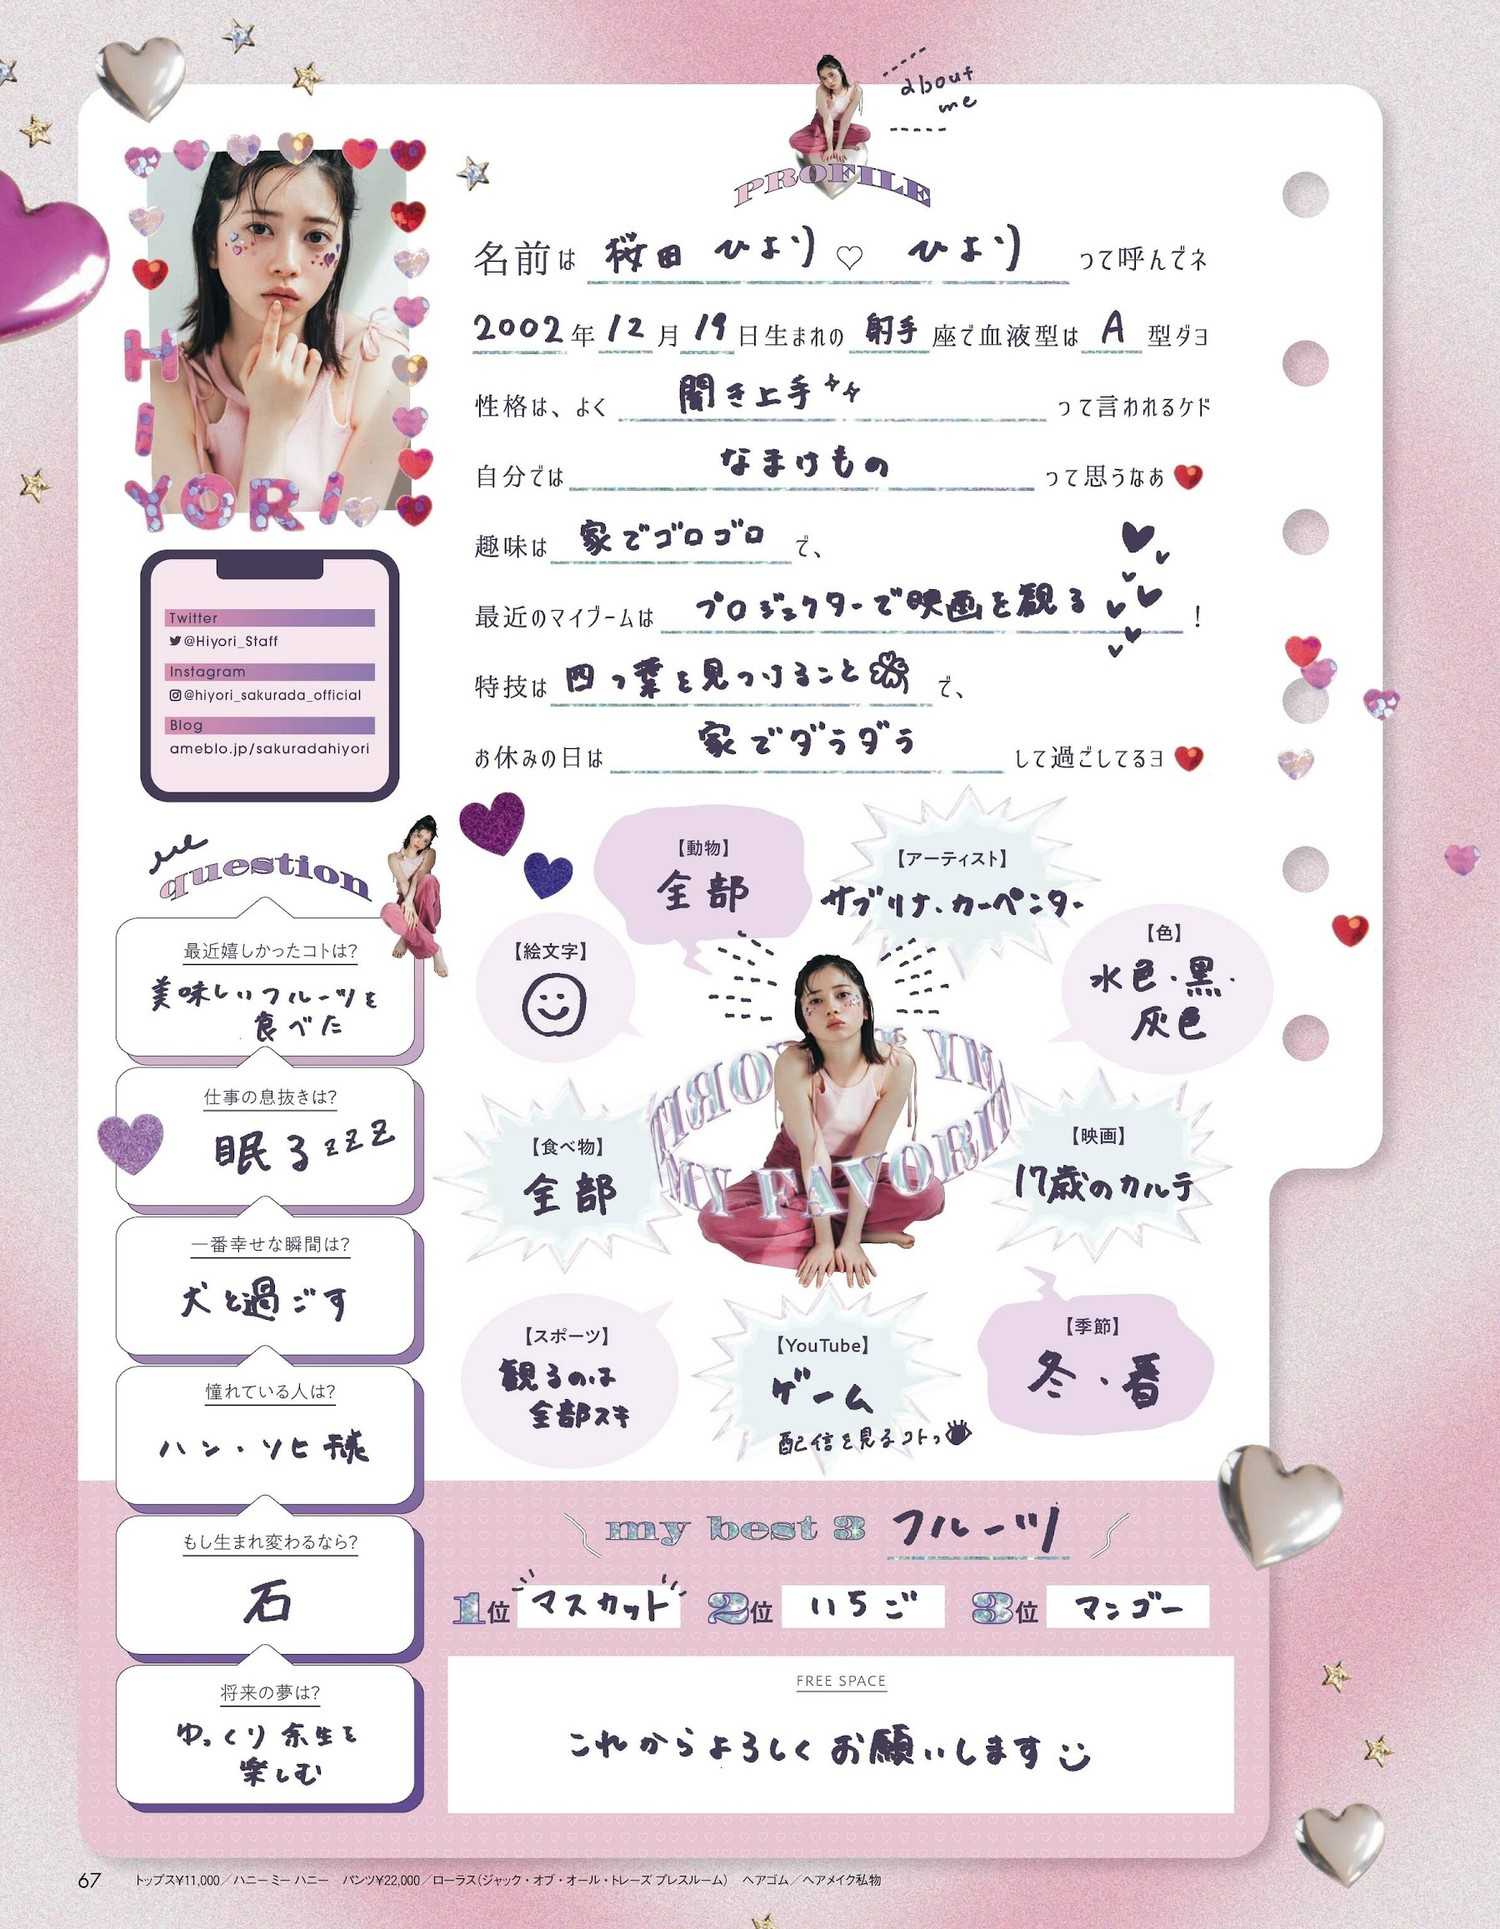 about
me
PROFILE
名前は 桜田 ひより♡ ひより って呼んでネ
2002年12月19日生まれの射手座で血液型はA型ダヨ
性格は、よく 聞き上手 って言われるケド
自分では なまけもの って思うなあ
趣味は 家でゴロゴロ で、
最近のマイブームは プロジェクターで映画を観る !
特技は 四つ葉を見つけること で、
お休みの日は 家でダラダラ して過ごしてるヨ
HIYORI
Twitter
@Hiyori_Staff
Instagram
@hiyori_sakurada_official
Blog
ameblo.jp/sakuradahiyori
question
最近嬉しかったコトは?
美味しいフルーツを
食べた
仕事の息抜きは?
眠るzzz
一番幸せな瞬間は?
犬と過ごす
憧れている人は?
ハン・ソヒ様
もし生まれ変わるなら?
石
将来の夢は?
ゆっくり余生を
楽しむ
【動物】
全部
【アーティスト】
サブリナ・カーペンター
【絵文字】
【色】
水色・黒・
灰色
【食べ物】
全部
MY FAVORITE
【映画】
17歳のカルテ
【スポーツ】
観るのは
全部スキ
【YouTube】
ゲーム
配信を見るコトっ
【季節】
冬・春
my best 3 フルーツ
1位 マスカット 2位 いちご 3位 マンゴー
FREE SPACE
これからよろしくお願いします
67 トップス¥11,000／ハニー ミー ハニー パンツ¥22,000／ローラス(ジャック・オブ・オール・トレーズ プレスルーム) ヘアゴム／ヘアメイク私物